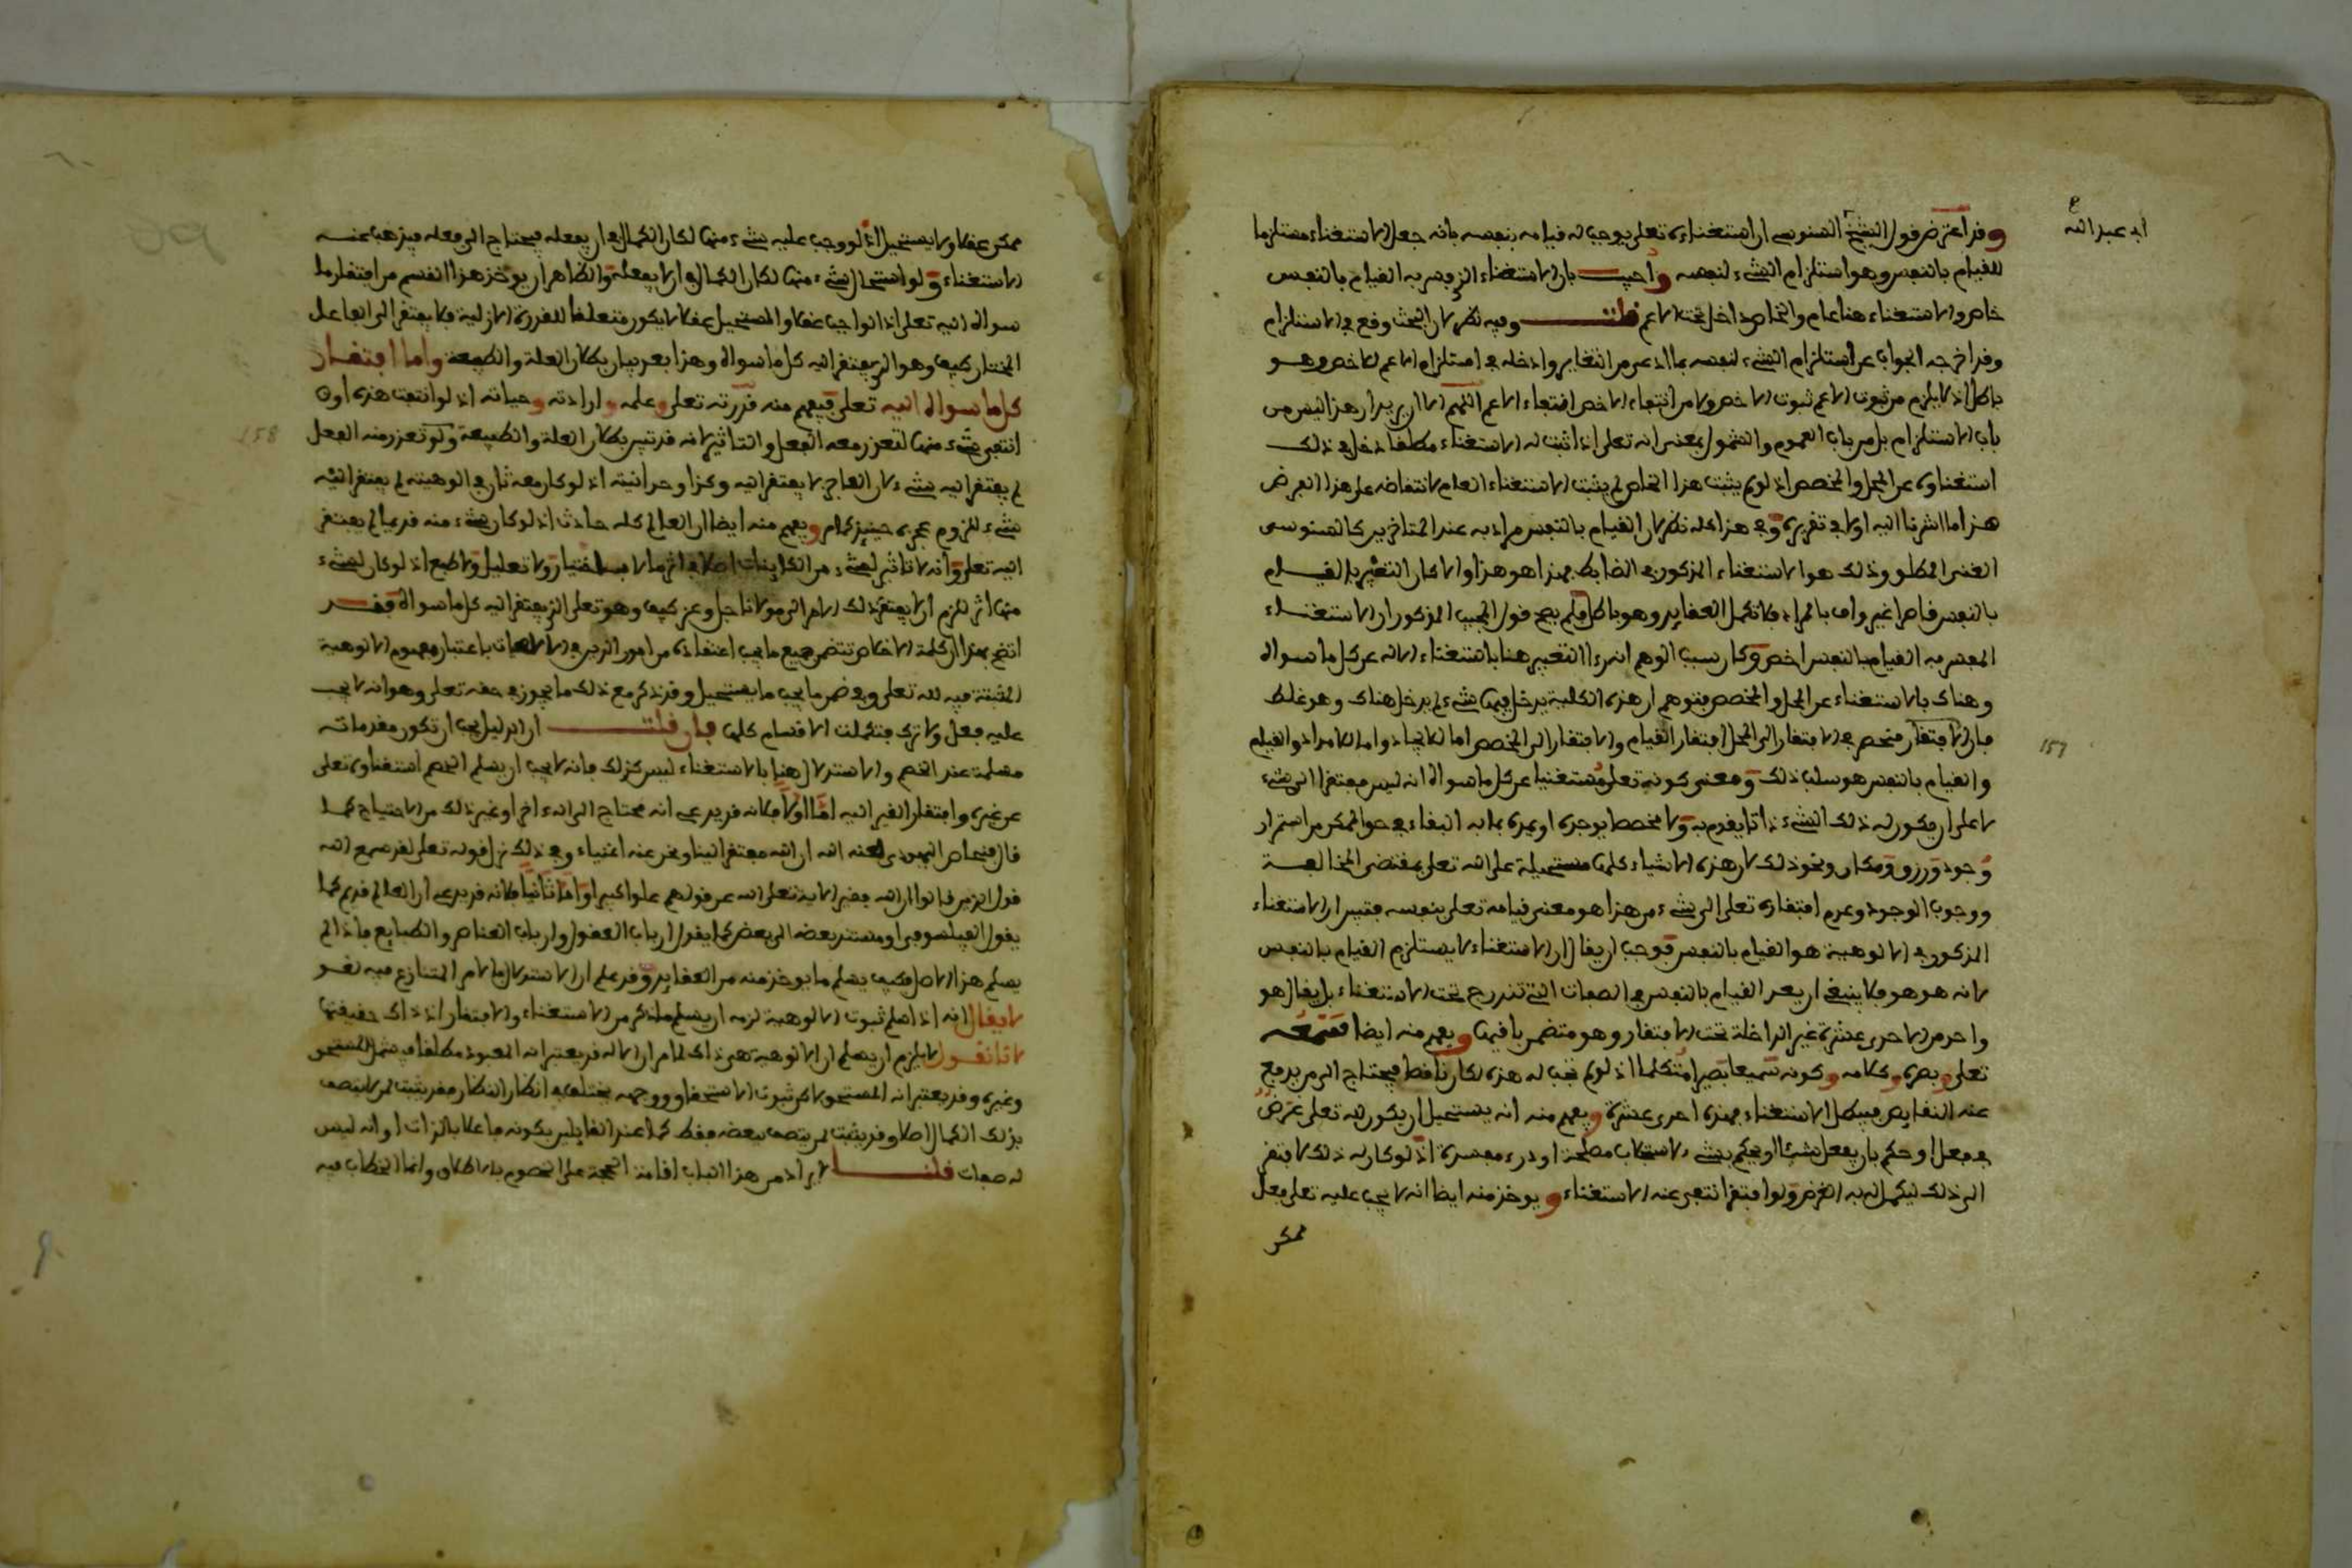 ابـ عبد الله
وقد اعترض قول الشيخ السنوسي ان استغناءه تعلى يوجب له قيامه بنفسه بانه جعل الاستغناء مستلزما
للقيام بالنفس وهو استلزام الشيء لنفسه وأجيب بان الاستغناء الذي فسر به القيام بالنفس
خاص والاستغناء هنا عام والخاص داخل تحت الاعم قلت وفيه نظر لان البحث وقع في الاستلزام
وقد اخرجه الجواب عن استلزام الشيء لنفسه بما ادعى من التغاير وادخله في استلزام الاعم للاخص وهو
باطل اذ لا يلزم من ثبوت الاعم ثبوت الاخص ولا من انتفاء الاخص انتفاء الاعم اللهم الا ان يريد ان هذا ليس من
باب الاستلزام بل من باب العموم والشمول بمعنى انه تعلى اذا ثبت له الاستغناء مطلقا دخل في ذلك
استغناوه عن المحل والمخصص اذ لو لم يثبت هذا الخاص لم يثبت الاستغناء العام لانتقاضه على هذا الفرض
هذا ما اشرنا اليه اولا في تقريره وفي هذا كله نظر لان القيام بالنفس مراد به عند المتاخرين كالسنوسي
الغنى المطلق وذلك هو الاستغناء المذكور في الضابط فهذا هو هذا والا كان التعبير بالقيام
بالنفس قاصرا غير واف بالمراد فلا تكمل العقايد وهو باطل فلم يصح قول المجيب المذكور ان الاستغناء
المفسر به القيام بالنفس اخص وكان سبب الوهم انه راا التعبير هنا باستغناء الاله عن كل ما سواه
وهناك بالاستغناء عن المحل والمخصص فتوهم ان هذه الكلية يدخل فيها شيء لم يدخل هناك وهو غلط
فان الافتقار منحصر في الافتقار الى المحل افتقار القيام والافتقار الى المخصص اما للايجاد واما للامداد والقيام
والقيام بالنفس هو سلب ذلك ومعنى كونه تعلى مستغنيا عن كل ما سواه انه ليس مفتقرا الى شيء
لا على ان يكون له ذلك الشيء ذاتا يقوم به ولا مخصصا يوجده او يمده بما به البقاء في حق الممكن من استمرار
وجود ورزق ومكان ونحو ذلك لان هذه الاشياء كلها مستحيلة على الله تعلى بمقتضى المخالفة
ووجوب الوجود وعدم افتقاره تعلى الى شيء من هذا هو معنى قيامه تعلى بنفسه فتبين ان الاستغناء
المذكور في الالوهية هو القيام بالنفس فوجب ان يقال ان الاستغناء لا يستلزم القيام بالنفس
لانه هو هو فلا ينبغي ان يعد القيام بالنفس في الصفات التي تندرج تحت الاستغناء بل يقال هو
واحد من الاحدى عشرة غير الداخلة تحت الافتقار وهو متضمن باقيها ويفهم منه ايضا سمعه
تعلى وبصره وكلامه وكونه سميعا بصيرا متكلما اذ لو لم تجب له هذه لكان ناقصا فيحتاج الى من يدفع
عنه النقايص فيبطل الاستغناء فهذه احدى عشرة ويفهم منه انه يستحيل ان يكون لله تعلى غرض
في فعل او حكم بان يفعل شيئا او يحكم بشيء لاستجلاب مصلحة او درء مفسدة اذ لو كان له ذلك لافتقر
الى ذلك ليكمل له به الغرض ولو افتقر انتفى عنه الاستغناء ويوخذ منه ايضا انه لا يجب عليه تعلى فعل
ممكن
157
ممكن عقلا ولا يستحيل اذ لو وجب عليه شيء منها لكان الكمال في ان يفعله فيحتاج الى فعله فيذهب عنه
الاستغناء ولو استحال شيء منها لكان الكمال في ان لا يفعله والظاهر ان يوخذ هذا القسم من افتقار ما
سواه اليه تعلى اذ الواجب عقلا والمستحيل عقلا لا يكون متعلقا للقدرة الازلية فلا يفتقر الى الفاعل
المختار كيف وهو الذي يفتقر اليه كل ما سواه وهذا بعد بيان بطلان العلة والطبيعة واما افتقار
كل ما سواه اليه تعلى فيفهم منه قدرته تعلى وعلمه وارادته وحياته اذ لو انتفت هذه او
انتفى شيء منها لتعذر معه الفعل والتاثير لانه قد تبين بطلان العلة والطبيعة ولو تعذر منه الفعل
لم يفتقر اليه شيء لان العاجز لا يفتقر اليه وكذا وحدانيته اذ لو كان معه ثان في الوهيته لم يفتقر اليه
شيء للزوم عجزه حينئذ كما مر ويفهم منه ايضا ان العالم كله حادث اذ لو كان شيء منه قديما لم يفتقر
اليه تعلى وانه لا تاثير لشيء من الكاينات اصلا في اثر ما لا باختيار ولا تعليل ولا طبع اذ لو كان لشيء
منها اثر للزم ان لا يفتقر ذلك الاثر الى مولانا جل وعز كيف وهو تعلى الذي يفتقر اليه كل ما سواه فقد
اتضح بهذا ان كلمة الاخلاص تتضمن جميع ما يجب اعتقاده من امور الدين في الالهيات باعتبار مفهوم الالوهية
المثبتة فيه لله تعلى وفي ضمن ما يجب ما يستحيل وقد ذكر مع ذلك ما يجوز في حقه تعلى وهو انه لا يجب
عليه فعل ولا ترك فتكملت الاقسام كلها فان قلت ان الدليل يجب ان تكون مقدماته
مسلمة عند الخصم والاستدلال هنا بالاستغناء ليس كذلك فانه لا يجب ان يسلم الخصم استغناوه تعلى
عن غيره وافتقار الغير اليه اما اولا فلانه قد يدعي انه محتاج الى اله اخر او غير ذلك من الاحتياج كما
قال فنحاص اليهودي لعنه الله ان الله مفتقر الينا ونحن عنه اغنياء وفي ذلك نزل قوله تعلى لقد سمع الله
قول الذين قالوا ان الله فقير الاية تعلى الله عن قولهم علوا كبيرا واما ثانيا فلانه قد يدعي ان العالم قديم كما
يقول الفيلسوفي او مستند بعضه الى بعض كما يقول ارباب العقول وارباب العناصر والطبايع فاذا لم
يسلم هذا الاصل فكيف يسلم ما يوخذ منه من العقايد وقد علم ان الاستدلال بالامر المتنازع فيه لغو
لا يقال انه اذا سلم ثبوت الالوهية لزمه ان يسلم ما ذكر من الاستغناء والافتقار اذ ذاك حقيقتها
لانا نقول لا يلزم ان يسلم ان الالوهية هي ذاك لما مر ان الاله قد يعتبر انه المعبود مطلقا فيشمل المستحق
وغيره وقد يعتبر انه المستحق لاكن ثبوت الاستحقاق ووجهه يختلف فيه انظار النظار فقد يثبت لمن لا يتصف
بذلك الكمال اصلا وقد يثبت لمن يتصف ببعضه فقط كما عند القايلين بكونه فاعلا بالذات او انه ليس
له صفات قلنا المراد من هذا الباب اقامة الحجة على الخصوم بالاطلاق وانما الخطاب فيه
158